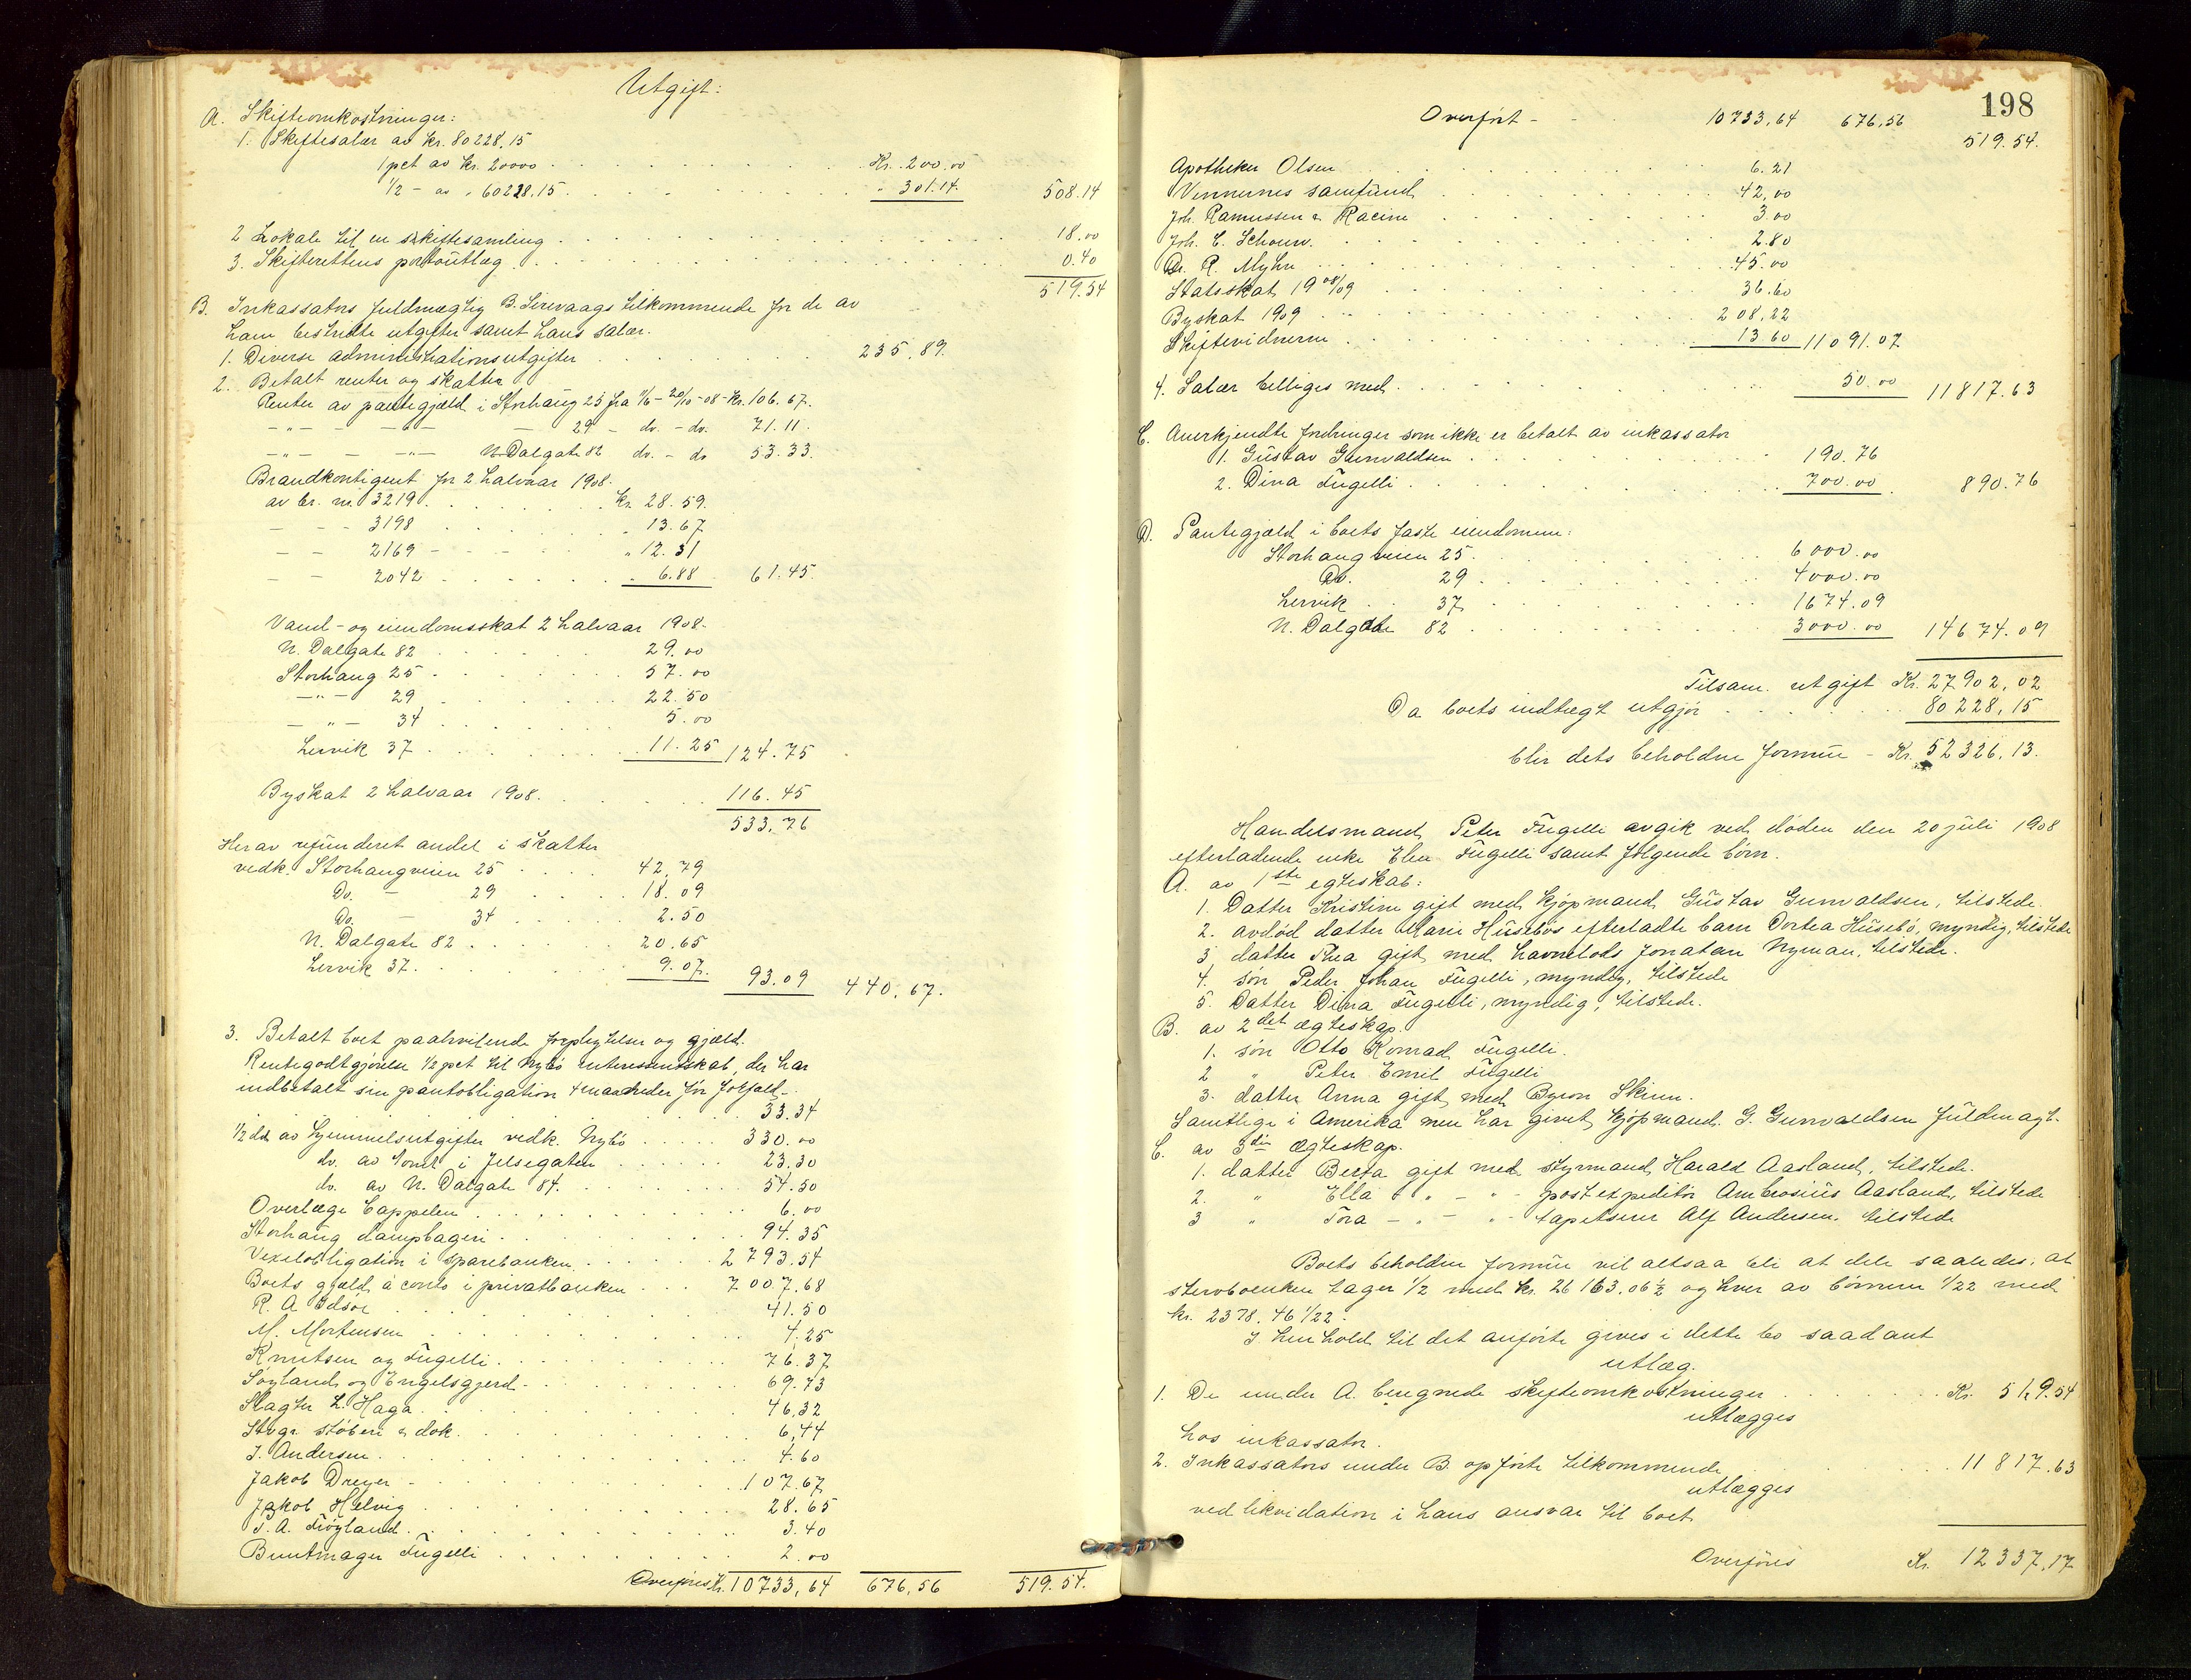 Utgift:
A. Skifteomkostninger:
1. Skiftesalær av kr. 80228,15
1 pct av kr. 20000 Kr. 200.00
1/2 - av " 60228,15 " 301.14 508.14
2 Lokale til en skiftesamling 18.00
3. Skifterettens portoutlæg 0.40
519.54
B. Inkassators fuldmægtig B. Lervaags tilkommende for de av
ham bestridte utgifter samt hans salær.
1. Diverse administrationsutgifter 235,89.
2. Betalt renter og skatter
Renter av pantegjæld i Storhaug 25 fra 11/6 - 20/10 - 08 - Kr. 106.67.
- " - - " - - 29 - do. - do. 71.11.
- " - - - " - N. Dalgate 82 do. - do 53.33.
Brandkontigent for 2 halvaar 1908.
av br. nr. 3219 Kr. 28.59.
- - - 3198 " 13.67
- - 2169 - " 12.31
- - 2042 " 6.88 61.45.
Vand- og eiendomsskat 2 halvaar 1908.
N. Dalgate 82 29.00
Storhaug 25 57.00
- " - 29 22.50
- " - 34 5.00
Lervik 37 11.25 124.75
Byskat 2 halvaar 1908. 116.45
533,76
Herav refunderet andel i skatter
vedk. Storhaugveien 25 42,79
Do. - 29 18.09
Do. - 34 2.50
N. Dalgate 82 20.65
Lervik 37. 9.07. 93.09 440,67.
3. Betalt boet paahvilende forpligtelser og gjæld.
Rentegodtgjørelse 1/2 pct til Nybø interessentskab, der har
indbetalt sin pantobligation 4 maaneder før forfald -
33.34
1/2 del av hjemmelsutgifter vedk. Nybø 330.00
do. av tomt i Jelsegaten 23.30
do. av N. Dalgate 84. 54.50
Overlæge Cappelen 6.00
Storhaug dampbageri 94.35
Vexelobligation i sparebanken 2793.54
Boets gjæld á conto i privatbanken 7007,68
R. A. Idsøe 41.50
M. Mortensen 4.25
Knutsen og Fugelli 76.37
Søyland og Engelsgjerd 69.73
Slagter L. Haga 46,32
Stvgr. støberi & dok. 6,44
I. Andersen 4.60
Jakob Dreyer 107.67
Jakob Helvig 28.65
T. A. Frøyland 3.40
Buntmager Fugelli 2.00
Overføres Kr. 10733,64 676,56 519.54.
198
Overført - 10733,64 676,56
519.54.
Apotheker Olsen 6.21
Vennernes samfund 42,00
Joh. Ramussen & Racine 3.00
Joh. C. Schouw. 2.80
Dr. R. Myhre 45.00
Statsskat 1908/09 36.60
Byskat 1909 208,22
Skiftevidnerne 13.60 11091.07
4. Salær billiges med 50.00 11817.63
C. Anerkjendte fordringer som ikke er betalt av inkassator
1. Gustav Gunvaldsen 190.76
2. Dina Fugelli 700.00 890.76
D. Pantegjæld i boets faste eiendomme:
Storhaugveien 25. 6000.00
Do. 29 4000.00
Lervik 37 1674.09
N. Dalgate 82 3000.00 14674.09
Tilsam. utgift Kr. 27902,02
Da boets indtægt utgjør 80228,15
blir dets beholdne formue - Kr. 52326,13.
Handelsmand Peter Fugelli avgik ved døden den 20 juli 1908
efterladende enke Elen Fugelli samt følgende børn.
A. av 1ste egteskab:
1. Datter Kristine gift med kjøpmand Gustav Gunvaldsen, tilstede.
2. avdød datter Marie Husebøs efterladte barn Dortea Husebø, myndig, tilstede
3 datter Thea gift med havnelods Jonatan Nyman, tilstede.
4. søn Peder Johan Fugelli, myndig, tilstede
5. Datter Dina Fugelli, myndig, tilstede.
B. av 2det ægteskap.
1. søn Otto Konrad Fugelli.
2 " Peter Emil Fugelli
3. datter Anna gift med Byron Skinn.
Samtlige i Amerika men har givet kjøpmand G. Gunvaldsen fuldmagt.
C. av 3die Ægteskap.
1. datter Berta gift med styrmand Harald Aasland, tilstede.
2. " Ella " - " - postexpeditør Ambrosius Aasland, tilstede
3 " Tora - " - " - tapetserer Alf Andersen. tilstede
Boets beholdne formue vil altsaa bli at dele saaledes: at
stervboenken tager 1/2 med kr. 26163.06 1/2 og hver av børnene 1/22 med
kr. 2378.46 1/22.
I henhold til det anførte gives i dette bo saadant
utlæg.
1. De under A. beregnede skifteomkostninger Kr. 519.54
utlægges
hos inkassator.
2. Inkassators under B. opførte tilkommende 11817.63
utlægges
ved likvidation i hans ansvar til boet
Overføres Kr. 12337,17